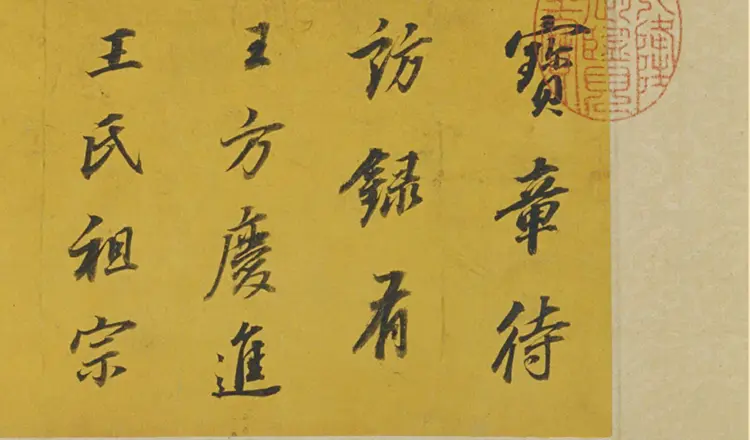 寶章待
訪錄有
王方慶進
王氏祖宗